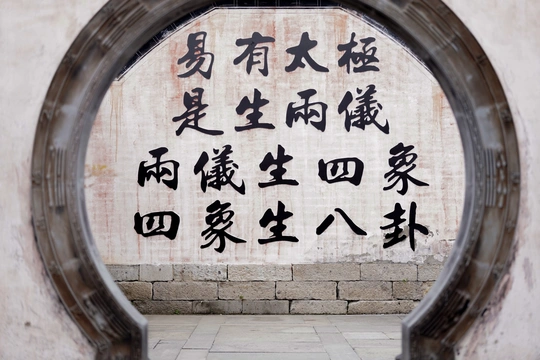 易有太極
是生兩儀
兩儀生四象
四象生八卦